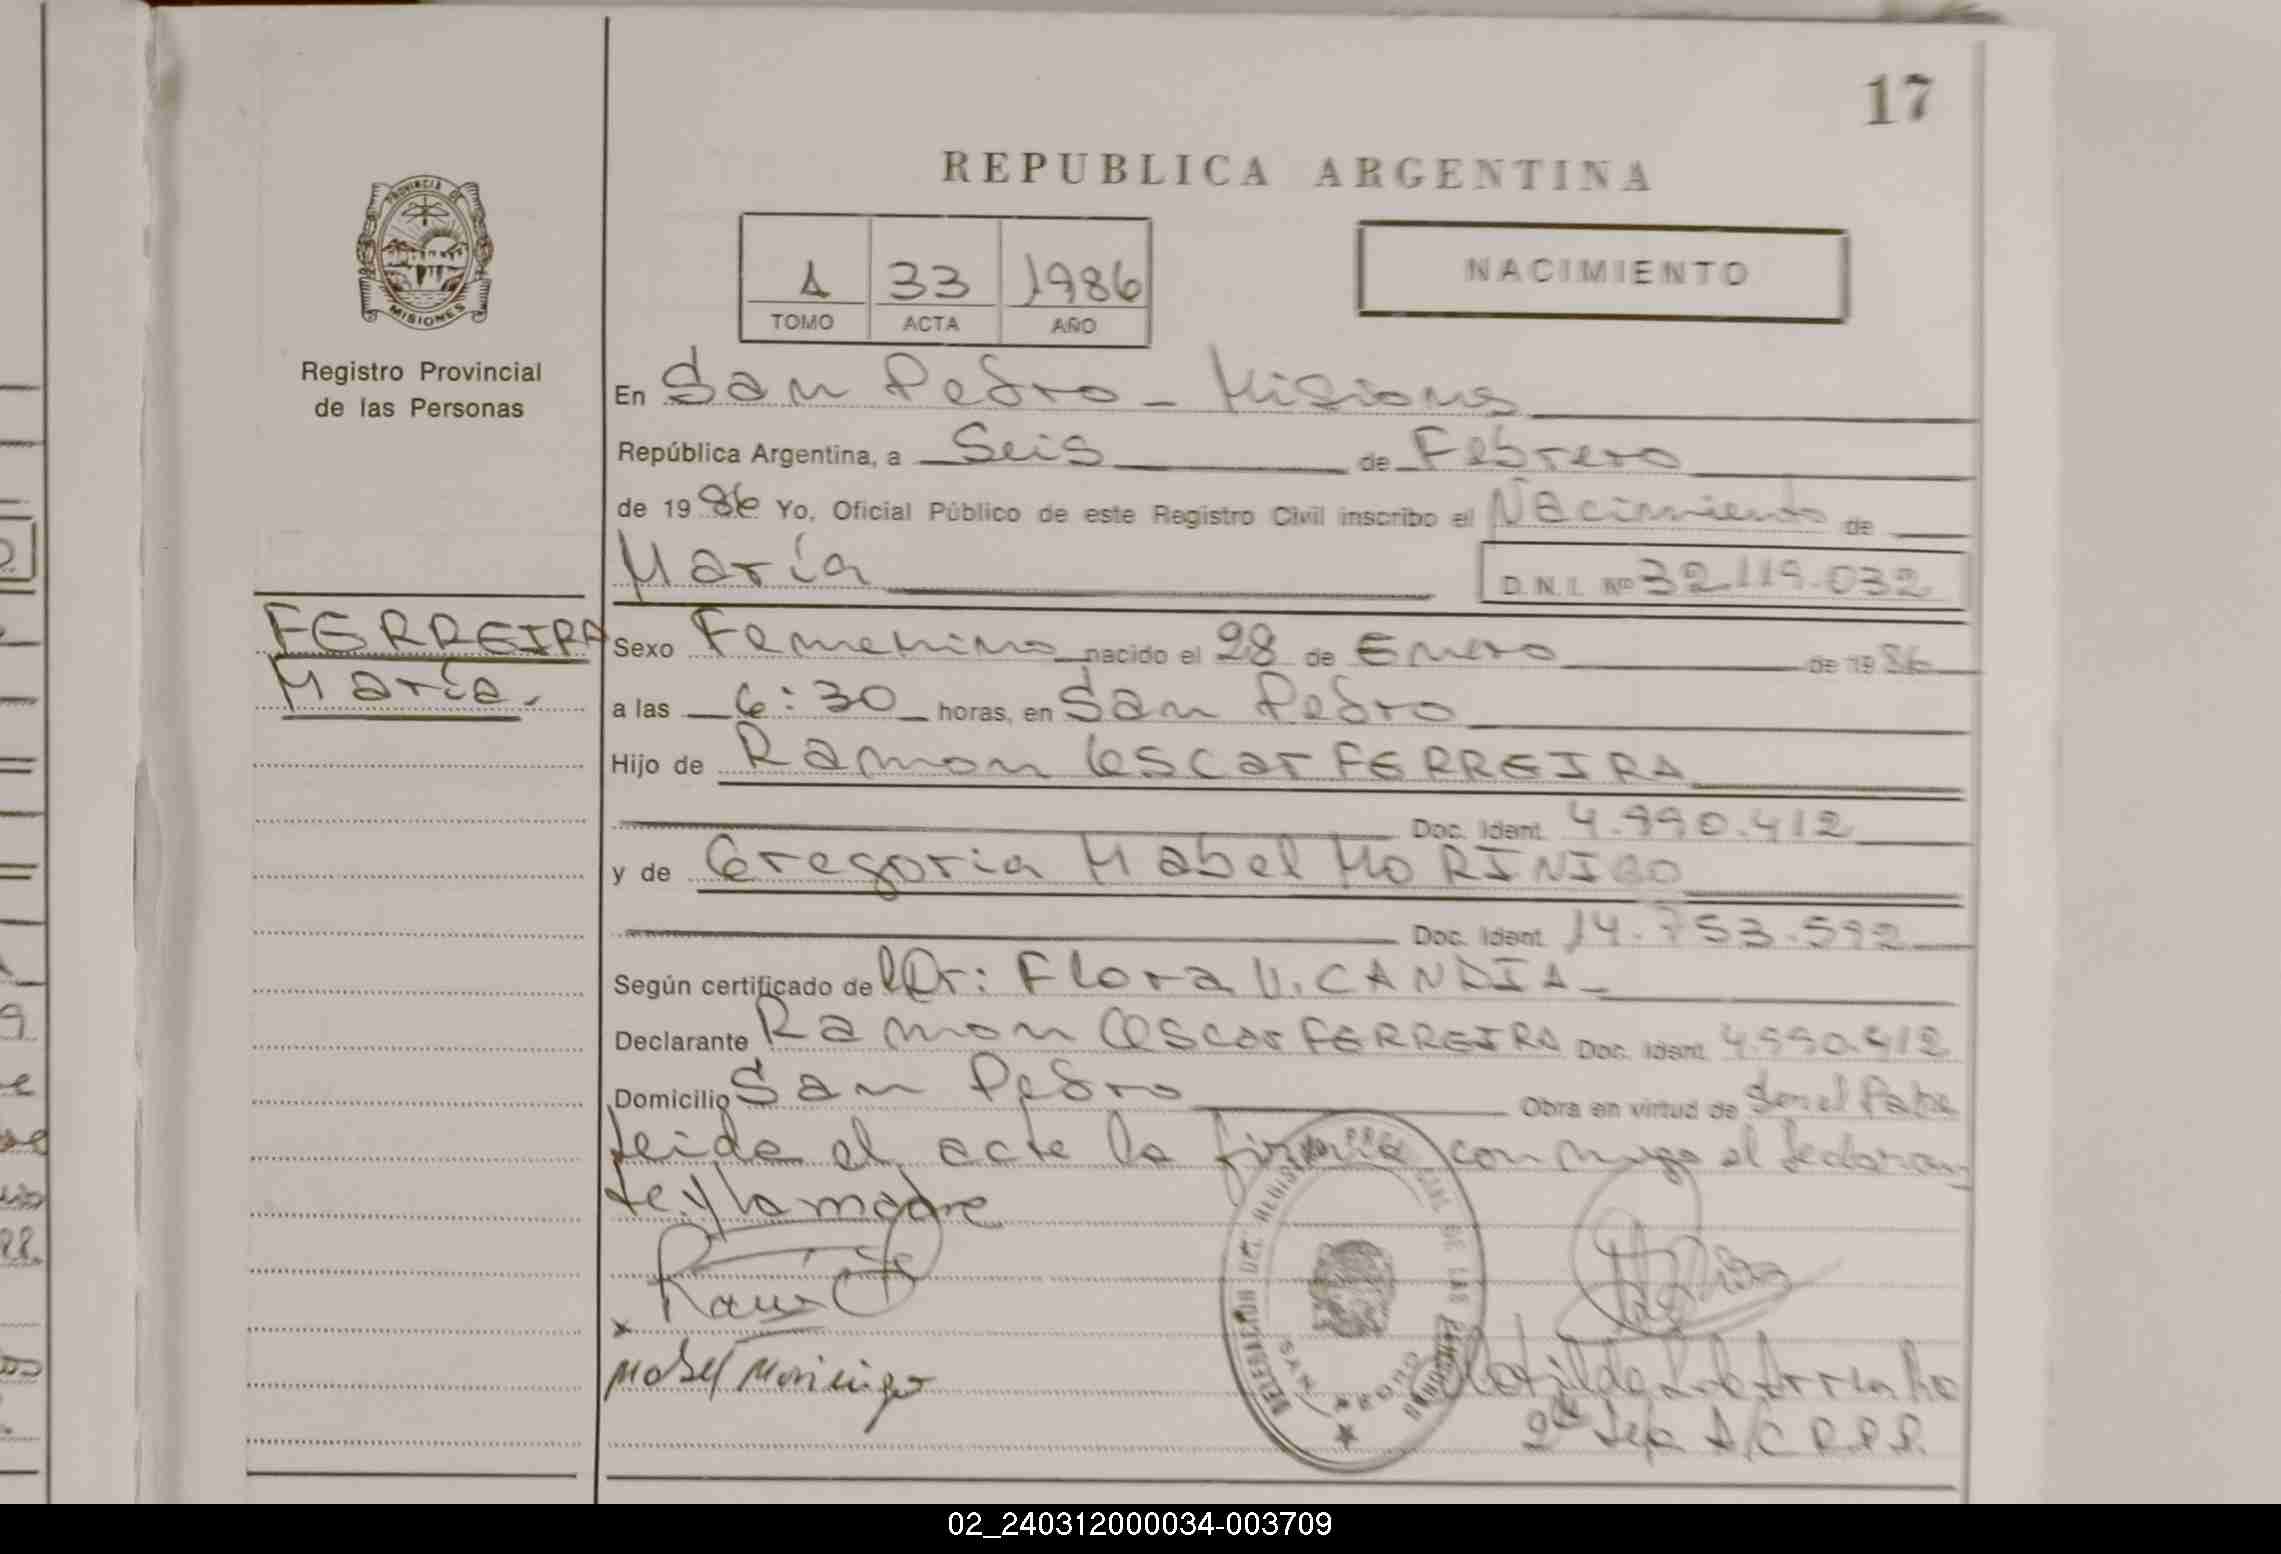 17
REPUBLICA ARGENTINA
PROVINCIA DE
MISIONES
Registro Provincial
de las Personas
1 33 1986
TOMO ACTA AÑO
NACIMIENTO
En San Pedro - Misiones
República Argentina, a Seis de Febrero
de 1986 Yo, Oficial Público de este Registro Civil inscribo el Nacimiento de
María D.N.I. Nº 32.119.032
FERREIRA
María.
Sexo Femenino nacido el 28 de Enero de 1986
a las 6:30 horas, en San Pedro
Hijo de Ramon Oscar FERREIRA
Doc. Ident. 4.990.412
y de Gregoria Mabel MORINIGO
Doc. Ident. 14.753.592
Según certificado de Dr: Flora V. CANDIA -
Declarante Ramon Oscar FERREIRA Doc. Ident. 4.990.412
Domicilio San Pedro Obra en virtud de Ser el Padre
Leida el acta la firma con migo el declaran
te y la madre
x
Mabel Morinigo
DELEGACION DEL DE LAS
02_240312000034-003709